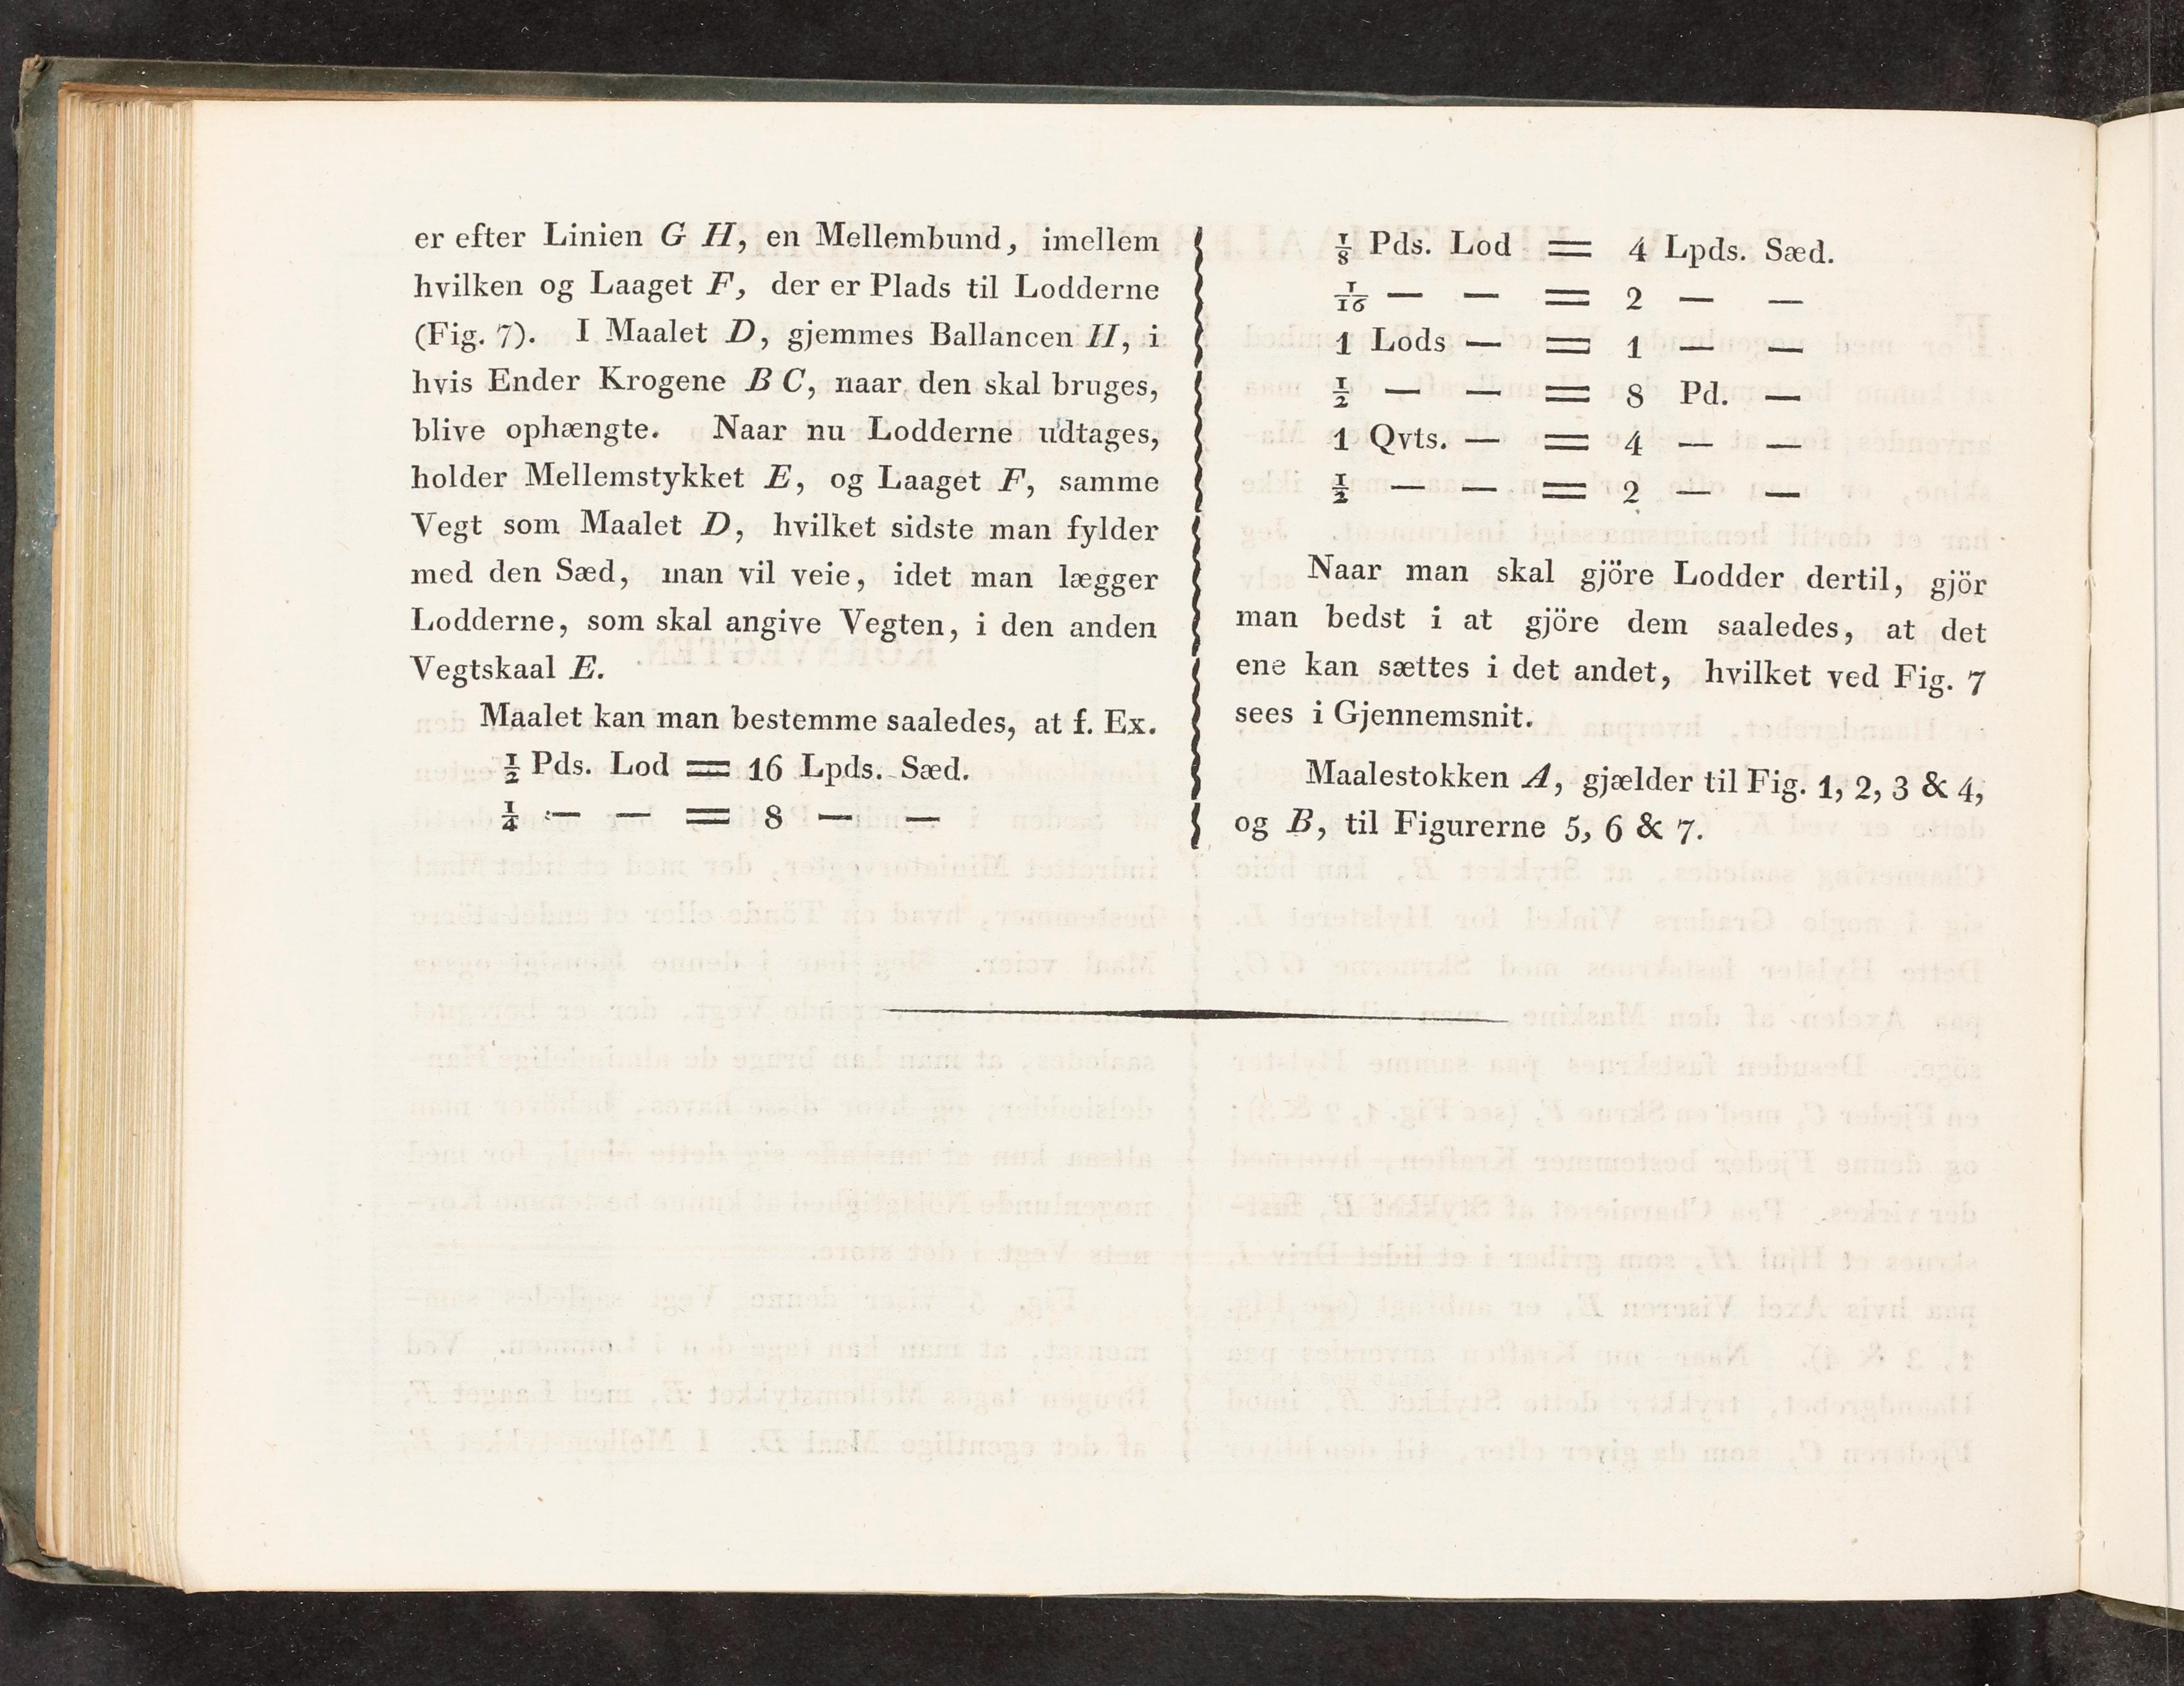 er efter Linien G H, en Mellembund, imellem
hvilken og Laaget F, der er Plads til Lodderne
(Fig. 7). I Maalet D, gjemmes Ballancen H, i
hvis Ender Krogene B C, naar den skal bruges,
blive ophængte. Naar nu Lodderne udtages,
holder Mellemstykket E, og Laaget F, samme
Vegt som Maalet D, hvilket sidste man fylder
med den Sæd, man vil veie, idet man lægger
Lodderne, som skal angive Vegten, i den anden
Vegtskaal E.
Maalet kan man bestemme saaledes, at f. Ex.
½ Pds. Lod = 16 Lpds. Sæd.
¼ — — = 8 — —
⅛ Pds. Lod = 4 Lpds. Sæd.
1/16 — — = 2 — —
1 Lods — = 1 — —
½ — — = 8 Pd. —
1 Qvts. — = 4 — —
½ — — = 2 — —
Naar man skal gjöre Lodder dertil, gjör
man bedst i at gjöre dem saaledes, at det
ene kan sættes i det andet, hvilket ved Fig. 7
sees i Gjennemsnit.
Maalestokken A, gjælder til Fig. 1, 2, 3 & 4,
og B, til Figurerne 5, 6 & 7.